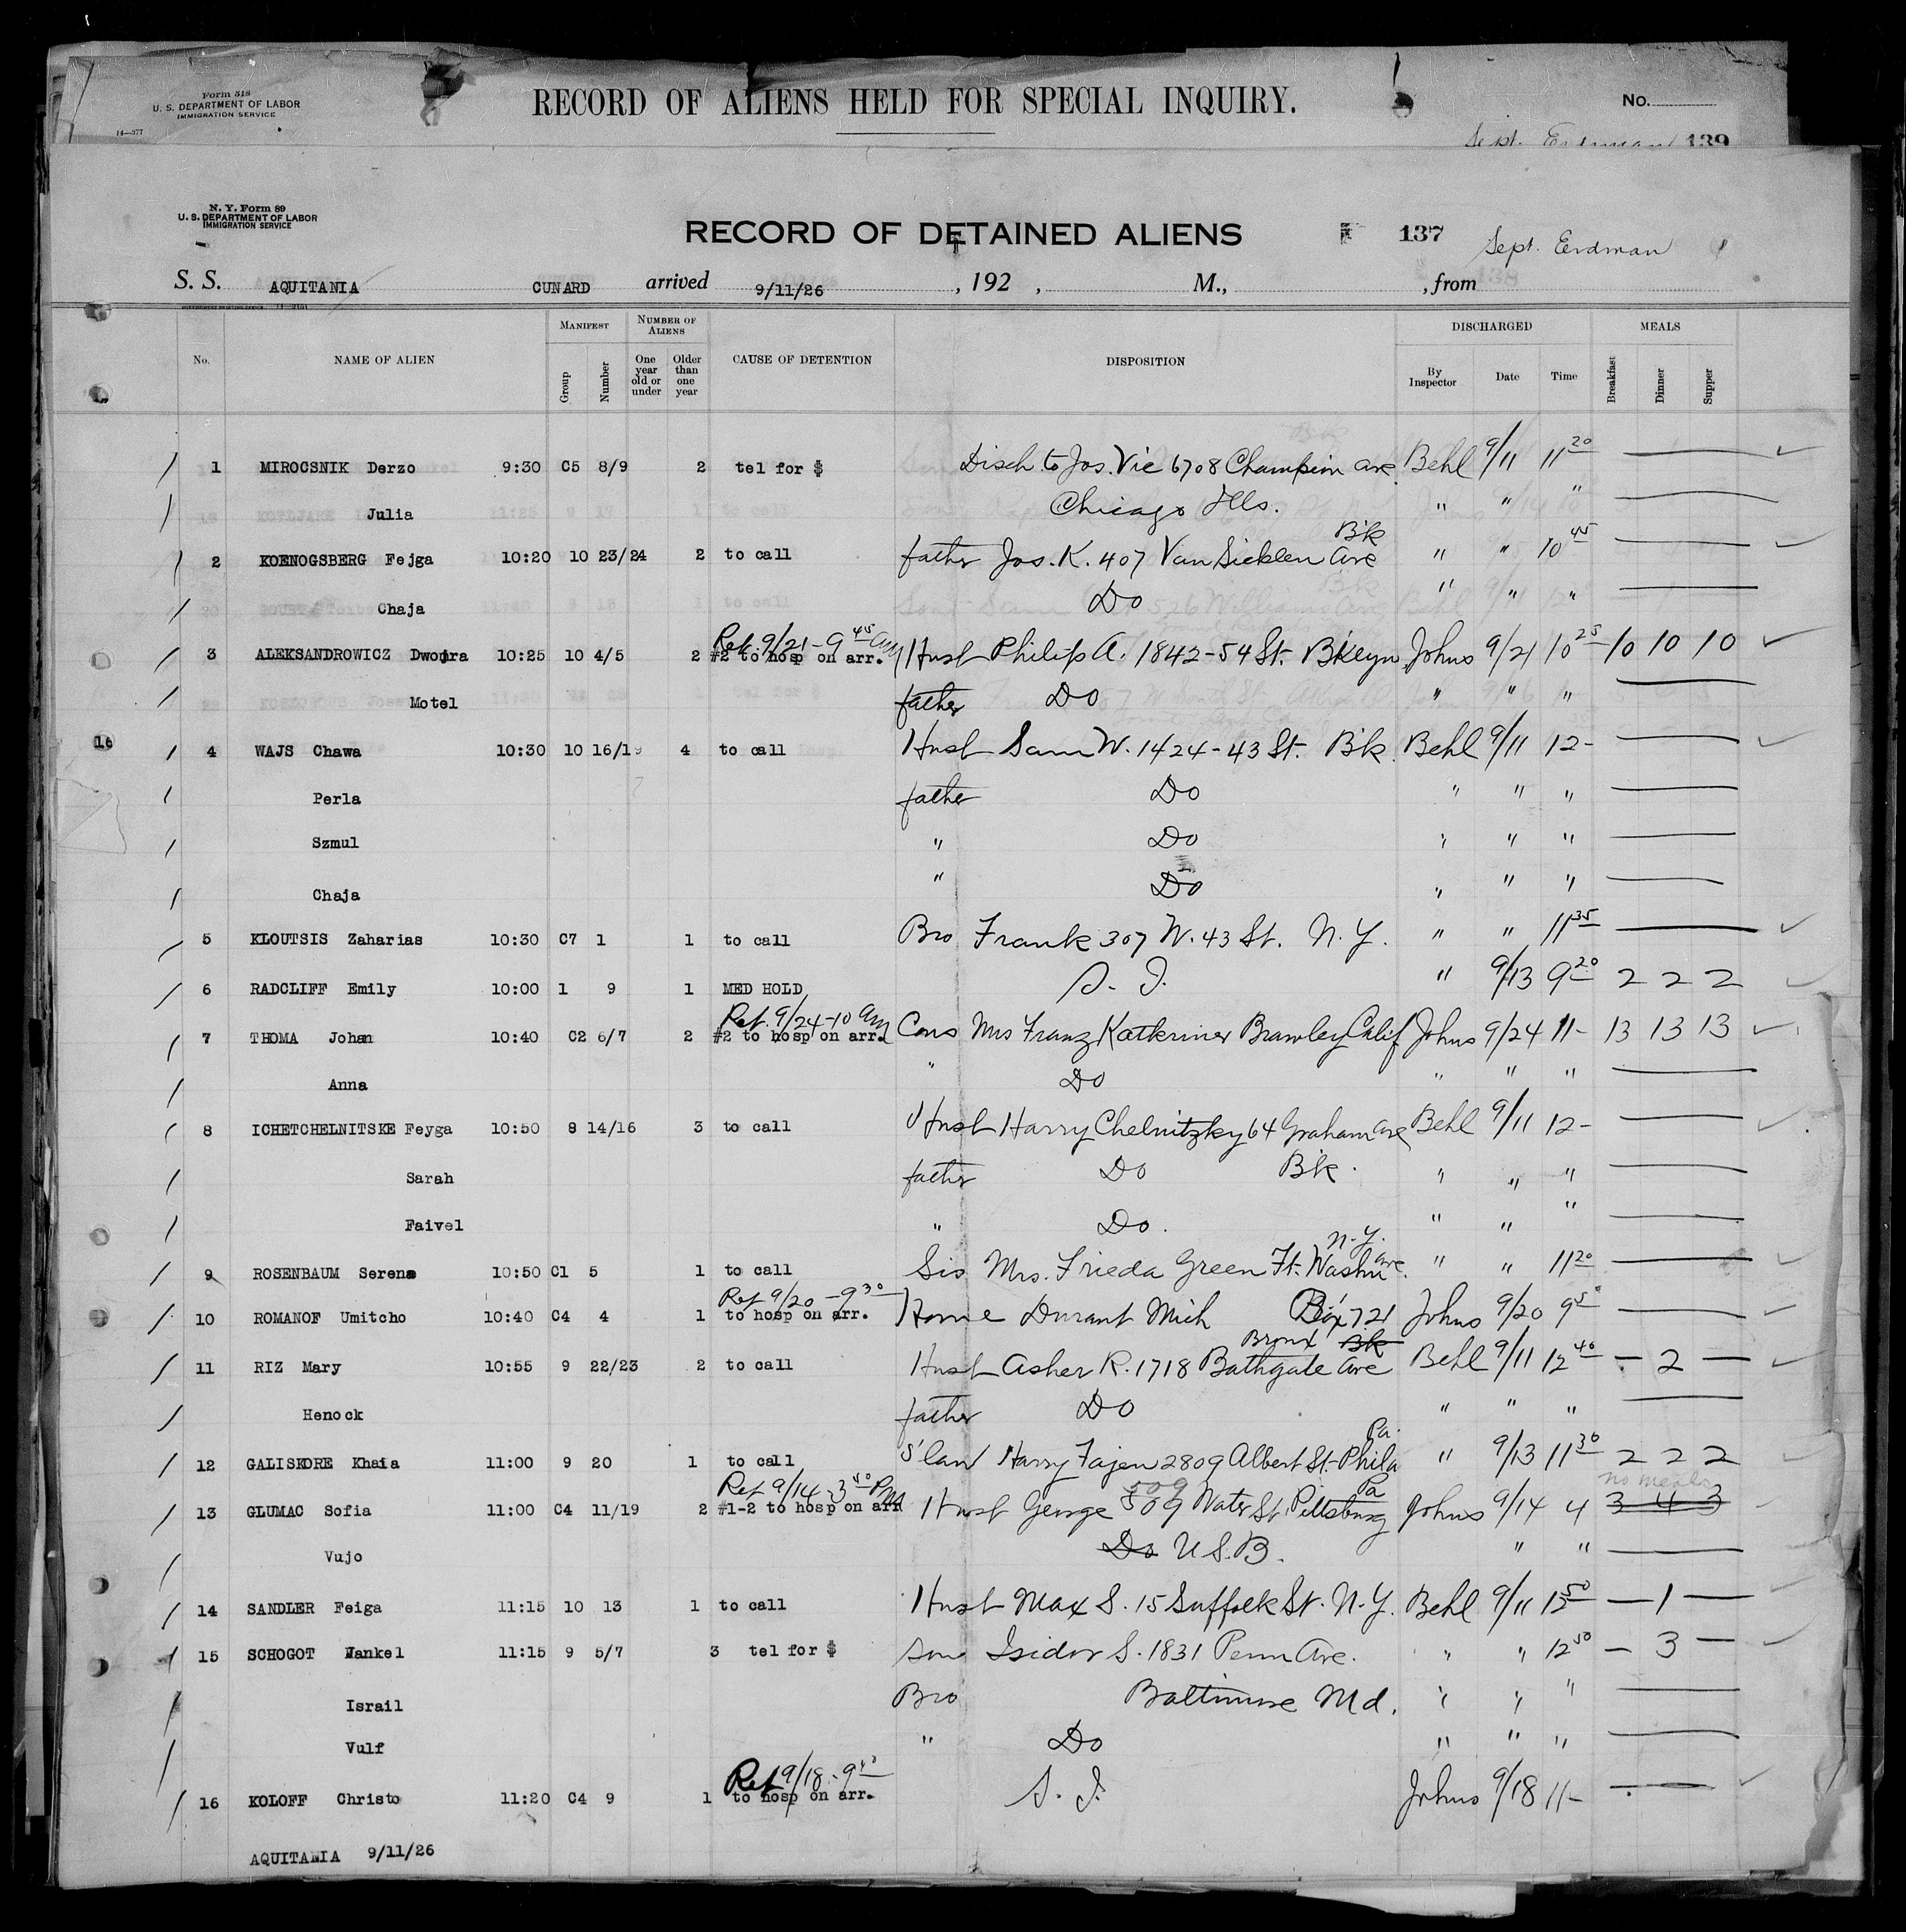 Form 518
U. S. DEPARTMENT OF LABOR
IMMIGRATION SERVICE
14—377
RECORD OF ALIENS HELD FOR SPECIAL INQUIRY.
No.
Sept. Erdman 139
N. Y. Form 89
U. S. DEPARTMENT OF LABOR
IMMIGRATION SERVICE
RECORD OF DETAINED ALIENS 137 Sept. Erdman
S. S. AQUITANIA CUNARD arrived 9/11/26 , 192 , M., , from
No. NAME OF ALIEN MANIFEST Group Number NUMBER OF ALIENS One year old or under Older than one year CAUSE OF DETENTION DISPOSITION DISCHARGED By Inspector Date Time MEALS Breakfast Dinner Supper
1 MIROCSNIK Derzo 9:30 C5 8/9 2 tel for $ Disch to Jos. Vic 6708 Champion ave Behl 9/11 11 20
Julia Chicago Ills. " " "
2 KOENOGSBERG Fejga 10:20 10 23/24 2 to call father Jos. K. 407 Van Sicklen ave Bk " " 10 45
Chaja Do " " "
3 ALEKSANDROWICZ Dwojra 10:25 10 4/5 2 Ret. 9/21 - 9 45 am #2 to hosp on arr. Husb Philip A. 1842-54 St. Bklyn Johns 9/21 10 25 10 10 10
Motel father Do " " "
16
4 WAJS Chawa 10:30 10 16/19 4 to call Husb Sam W. 1424-43 St. Bk. Behl 9/11 12-
Perla father Do " " "
Szmul " Do " " "
Chaja " Do " " "
5 KLOUTSIS Zaharias 10:30 C7 1 1 to call Bro Frank 307 W. 43 St. N. Y. " " 11 35
6 RADCLIFF Emily 10:00 1 9 1 MED HOLD S. I. " 9/13 9 20 2 2 2
7 THOMA Johan 10:40 C2 6/7 2 Ret. 9/24-10 am #2 to hosp on arr. Cous Mrs Franz Katheriner Brawley Calif Johns 9/24 11- 13 13 13
Anna " Do " " "
8 ICHETCHELNITSKE Feyga 10:50 9 14/16 3 to call Husb Harry Chelnitzky 64 Graham ave Behl 9/11 12-
Sarah father Do Bk. " " "
Faivel " Do. " " "
9 ROSENBAUM Serena 10:50 C1 5 1 to call Sis Mrs. Frieda Green Ft. Washn ave. N.Y. " " 11 20
10 ROMANOF Umitcho 10:40 C4 4 1 Ret 9/20 - 9 30 to hosp on arr. Home Durant Mich Box 721 Johns 9/20 9 50
11 RIZ Mary 10:55 9 22/23 2 to call Husb Asher R. 1718 Bathgate ave Bronx Bk Behl 9/11 12 40 - 2 -
Henock father Do " " "
12 GALISKORE Khaia 11:00 9 20 1 to call S'law Harry Fajen 2809 Albert St. Phila Pa. " 9/13 11 30 2 2 2
13 GLUMAC Sofia 11:00 C4 11/19 2 Ret 9/14-3 40 PM #1-2 to hosp on arr Husb George 509 509 Water St Pittsburg Pa Johns 9/14 4 3 4 3 no meals
Vujo Do U.S.B. " "
14 SANDLER Feiga 11:15 10 13 1 to call Husb Max S. 15 Suffolk St. N.Y. Behl 9/11 12 50 - 1 -
15 SCHOGOT Jankel 11:15 9 5/7 3 tel for $ son Isidor S. 1831 Penn Ave. " " 12 50 - 3 -
Israil Bro Baltimore Md. " " "
Vulf " Do " " "
16 KOLOFF Christo 11:20 C4 9 1 Ret 9/18 - 9 to hosp on arr. S. I. Johns 9/18 11-
AQUITANIA 9/11/26